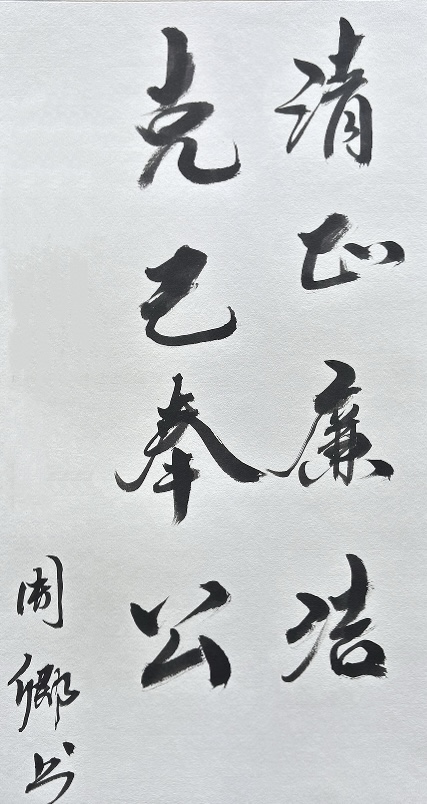 清正廉洁
克己奉公
周乡书